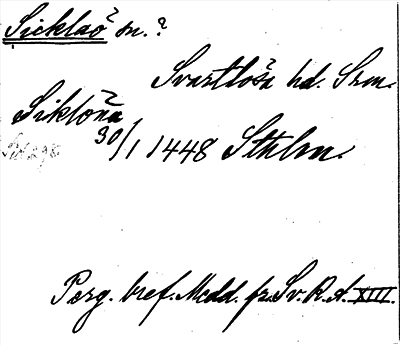 Sicklaö sn.?
Svartlösa hd. Srm.
Siklöna
30/1 1448 Sthlm.
Perg. bref. Medd. fr. Sv. R. A. XIII.